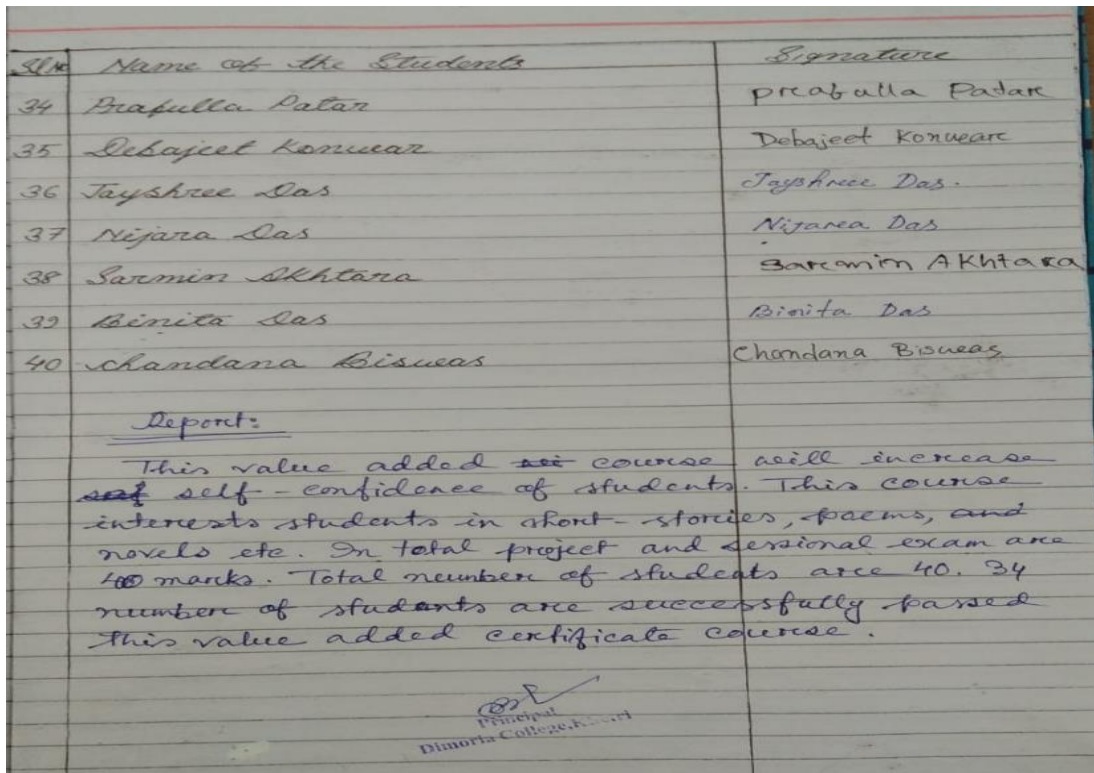 Sl No Name of the Students Signature
34 Prafulla Patar Preafulla Patare
35 Debajeet Konwar Debajeet Konwarc
36 Jayshree Das Jayshree Das.
37 Nijara Das Nijarea Das
38 Sarmin Akhtara Sarcmin AKhtara
39 Binita Das Binita Das
40 Chandana Biswas Chandana Biswas
Report:
This value added course will increase
self-confidence of students. This course
interests students in short-stories, poems, and
novels etc. In total project and sessional exam are
marks. Total number of students are 40. 34
number of students are successfully passed
this value added certificate course.
Principal
Dimoria College,